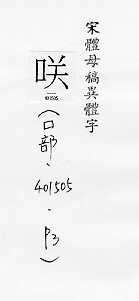 宋體母稿異體字
咲
(口部.401505.P3)